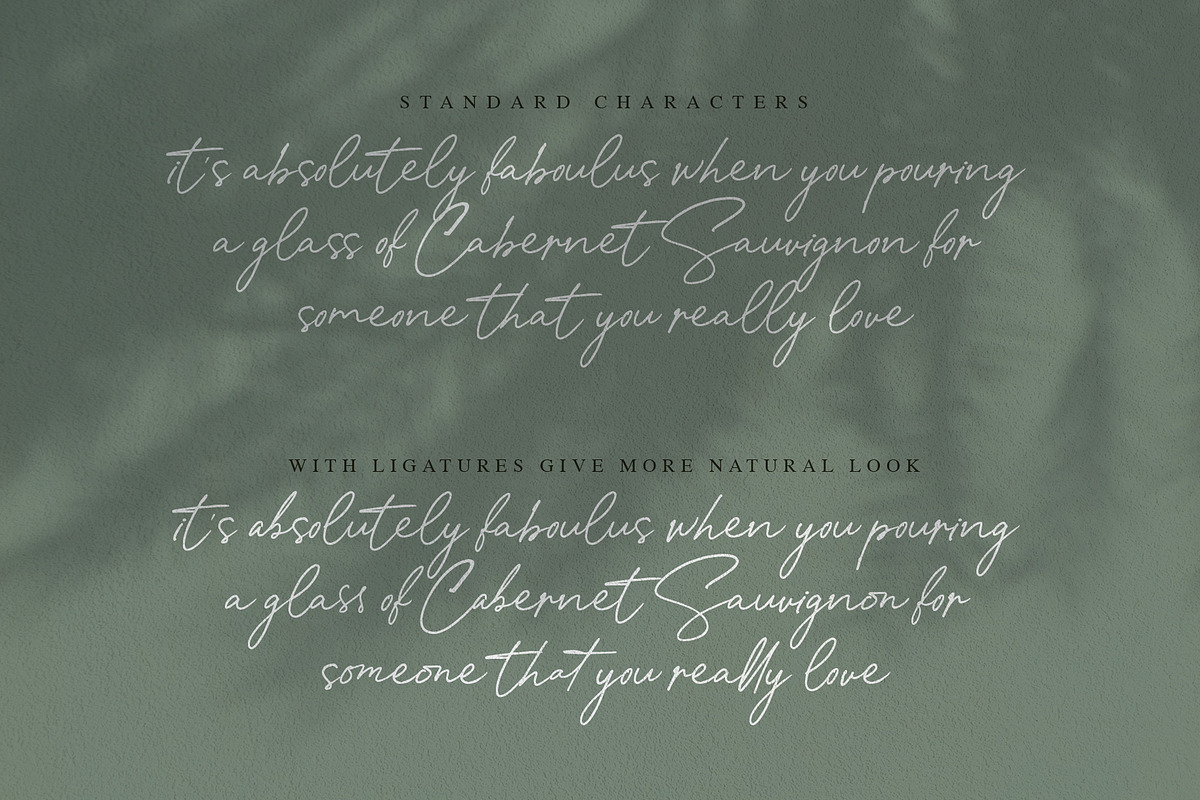 STANDARD CHARACTERS
it's absolutely faboulus when you pouring
a glass of Cabernet Sauvignon for
someone that you really love
WITH LIGATURES GIVE MORE NATURAL LOOK
it's absolutely faboulus when you pouring
a glass of Cabernet Sauvignon for
someone that you really love